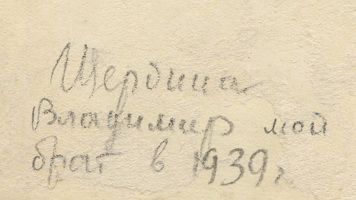 Щербина
Владимир мой
брат в 1939 г